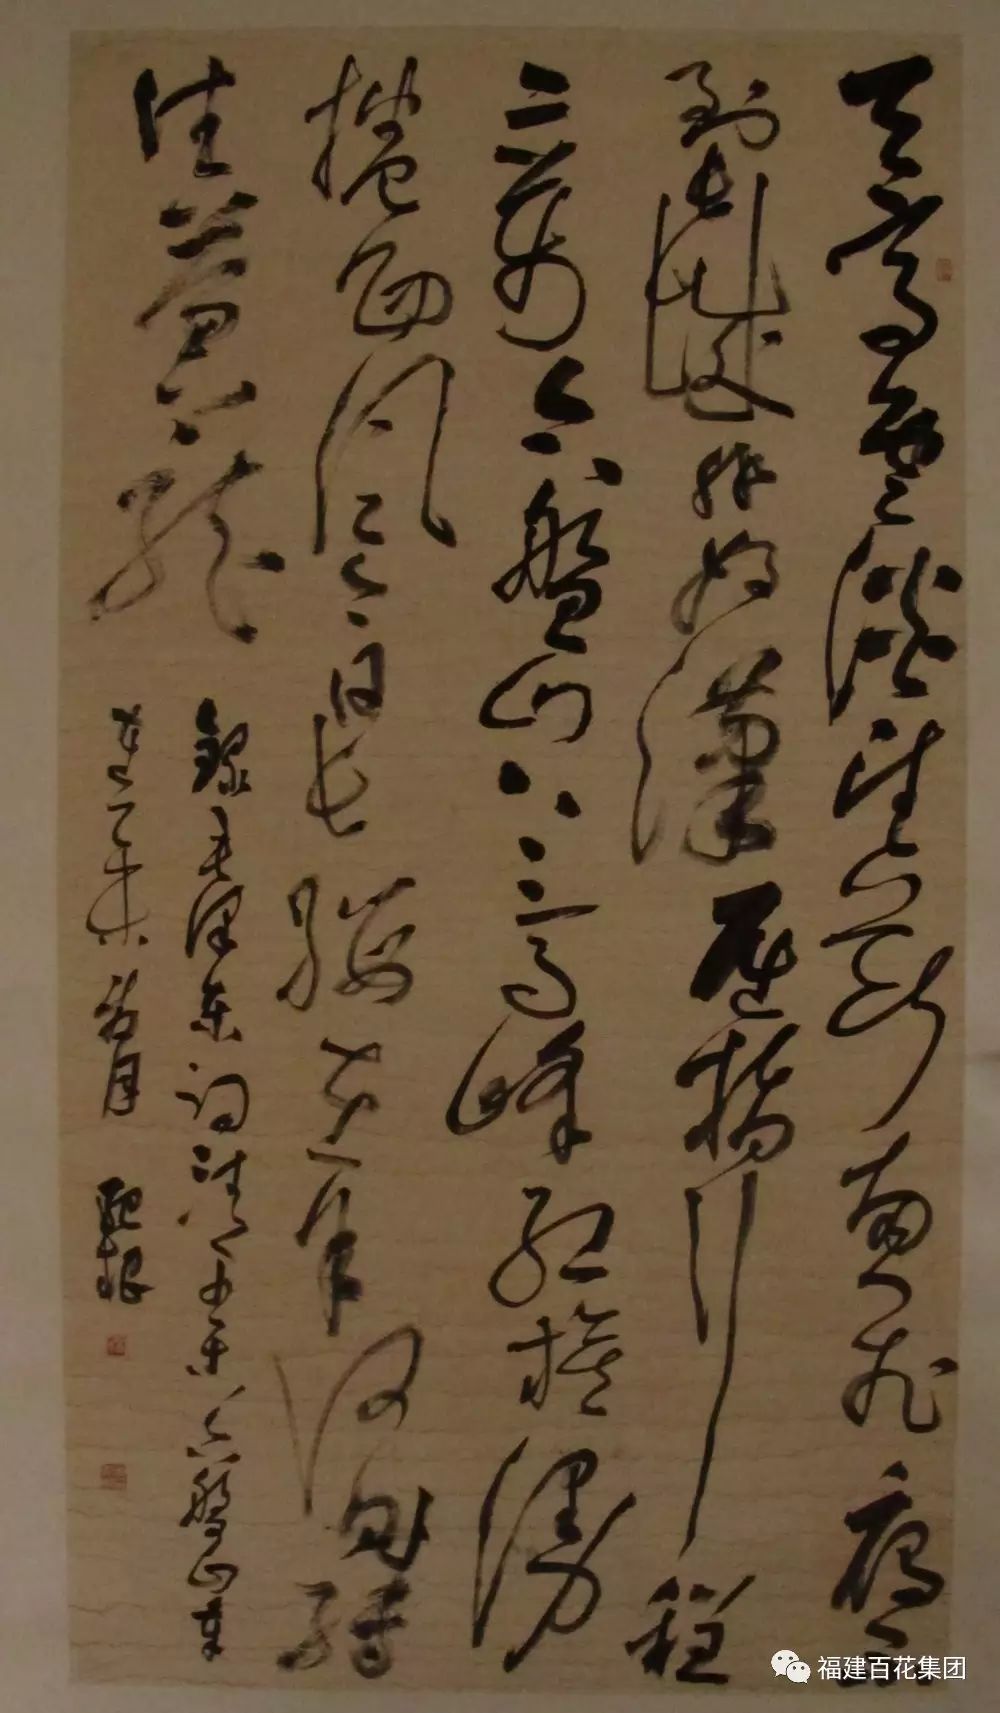 天高雲淡望断南飛雁不
到长城非好漢屈指行程
二萬六盤山上高峰红旗漫
捲西风今日长缨在手何时缚
住蒼龍
錄毛澤東词清平乐六盤山
在乙未月
福建百花集团